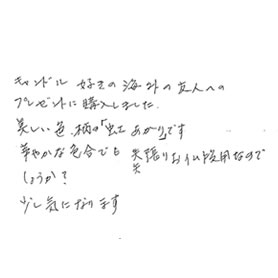 キャンドル 好きの海外の友人への
プレゼントに購入しました.
美しい色、柄の「虹 あがり」です
華やかな色合でも 矢張りお仏段用なので
しょうか?
少し気になります